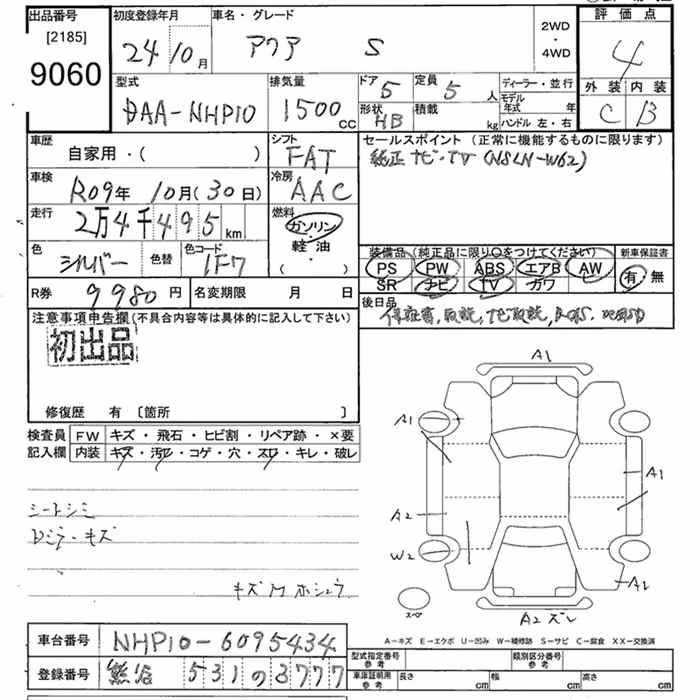 出品番号 初度登録年月 車名・グレード 評価点
[2185] 24 10月 アクア S 2WD ・ 4WD 4
9060
型式 排気量 ドア 5 定員 5人 ディーラー・並行 外装 内装
DAA-NHP10 1500cc 形状 HB 積載 kg モデル年式 年 C B
ハンドル 左・右
車歴 シフト セールスポイント (正常に機能するものに限ります)
自家用・( ) FAT 純正ナビ・TV (NSLN-W62)
車検 冷房
R09年 10月(30日) AAC
走行 燃料
2万4千495km ガソリン・軽油・( )
色 色替 色コード 装備品 (純正品に限り○をつけてください) 新車保証書
シルバー 1F7 PS PW ABS エアB AW 有・無
SR ナビ TV カワ
R券 9980円 名変期限 月 日 後日品
注意事項申告欄(不具合内容等は具体的に記入して下さい) 保証書, 取説, ナビ取説,
初出品
修復歴 有 [箇所 ]
検査員 FW キズ・飛石・ヒビ割・リペア跡・×要
記入欄 内装 キズ・汚レ・コゲ・穴・スレ・キレ・破レ
シートシミ
Dミラーキズ
キズMホシュウ
A1
A1
A1
A2
W2
A1
スペ
A2 ズレ
A-キズ E-エクボ U-凹み W-補修跡 S-サビ C-腐食 XX-交換済
車台番号 NHP10-6095434 型式指定番号 参考 類別区分番号 参考
登録番号 熊谷 531 の 3777 車庫証明用 参考 長さ cm 幅 cm 高さ cm